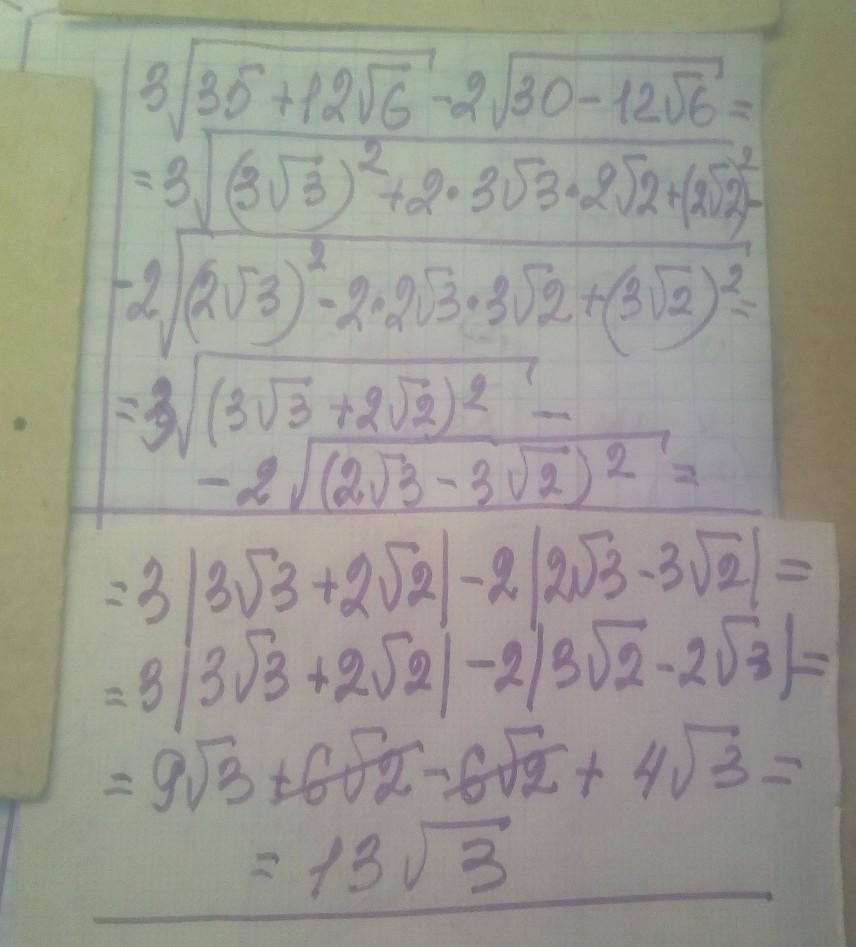 3√(35+12√6) -2√(30-12√6) =
=3√((3√3)²+2·3√3·2√2+(2√2)²)-
-2√((2√3)²-2·2√3·3√2+(3√2)²)=
=3√((3√3+2√2)²) -
-2√((2√3-3√2)²) =
=3|3√3+2√2|-2|2√3-3√2|=
=3|3√3+2√2|-2|3√2-2√3|=
=9√3+6√2-6√2+4√3=
=13√3